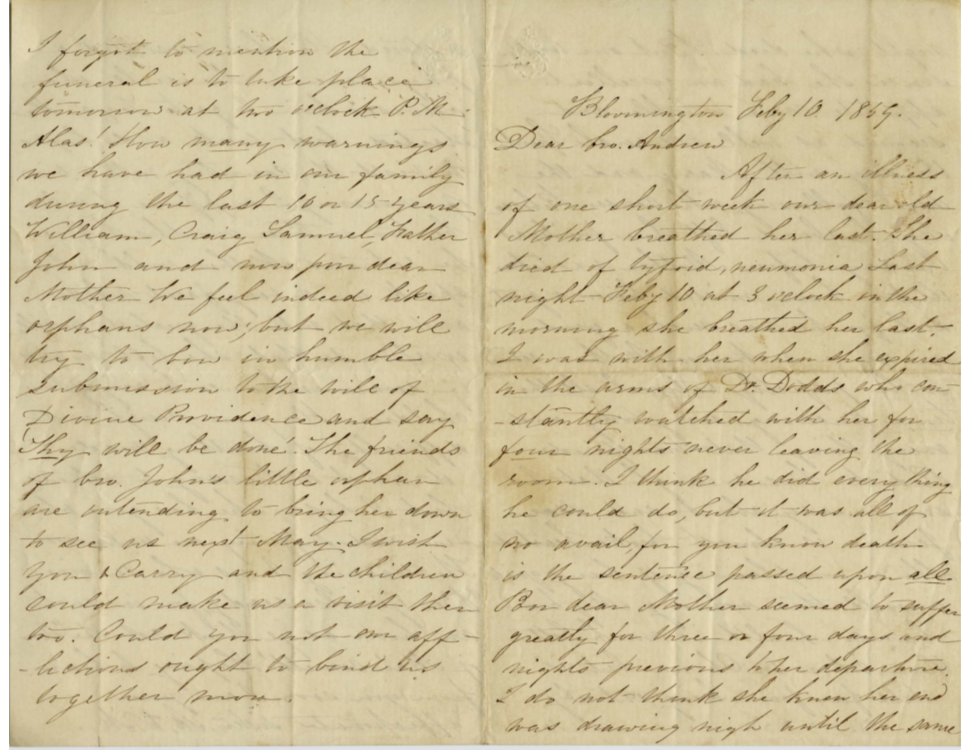 I forgot to mention the
funeral is to take place
tomorrow at two oclock P.M.
Alas! How many warnings
we have had in our family
during the last 10 or 15 years
William, Craig Samuel, Father
John and now poor dear
Mother We feel indeed like
orphans now; but we will
try to bow in humble
submission to the will of
Divine Providence and say
'Thy will be done'. The friends
of bro. John's little orphan
are intending to bring her down
to see us next May. I wish
you & Carry and the children
could make us a visit then
too. Could you not our aff-
-lictions ought to bind us
together more.
Bloomington Feby 10 1859.
Dear bro. Andrew
After an illness
of one short week our dear old
Mother breathed her last. She
died of tyfoid, neumonia Last
night Feby 10 at 3 oclock in the
morning she breathed her last.
I was with her when she expired
in the arms of Dr. Dodds who con
-stantly watched with her for
four nights never leaving the
room. I think he did everything
he could do, but it was all of
no avail, for you know death
is the sentence passed upon all
Poor dear Mother seemed to suffer
greatly for three or four days and
nights previous to her departure.
I do not think she knew her end
was drawing nigh until the same